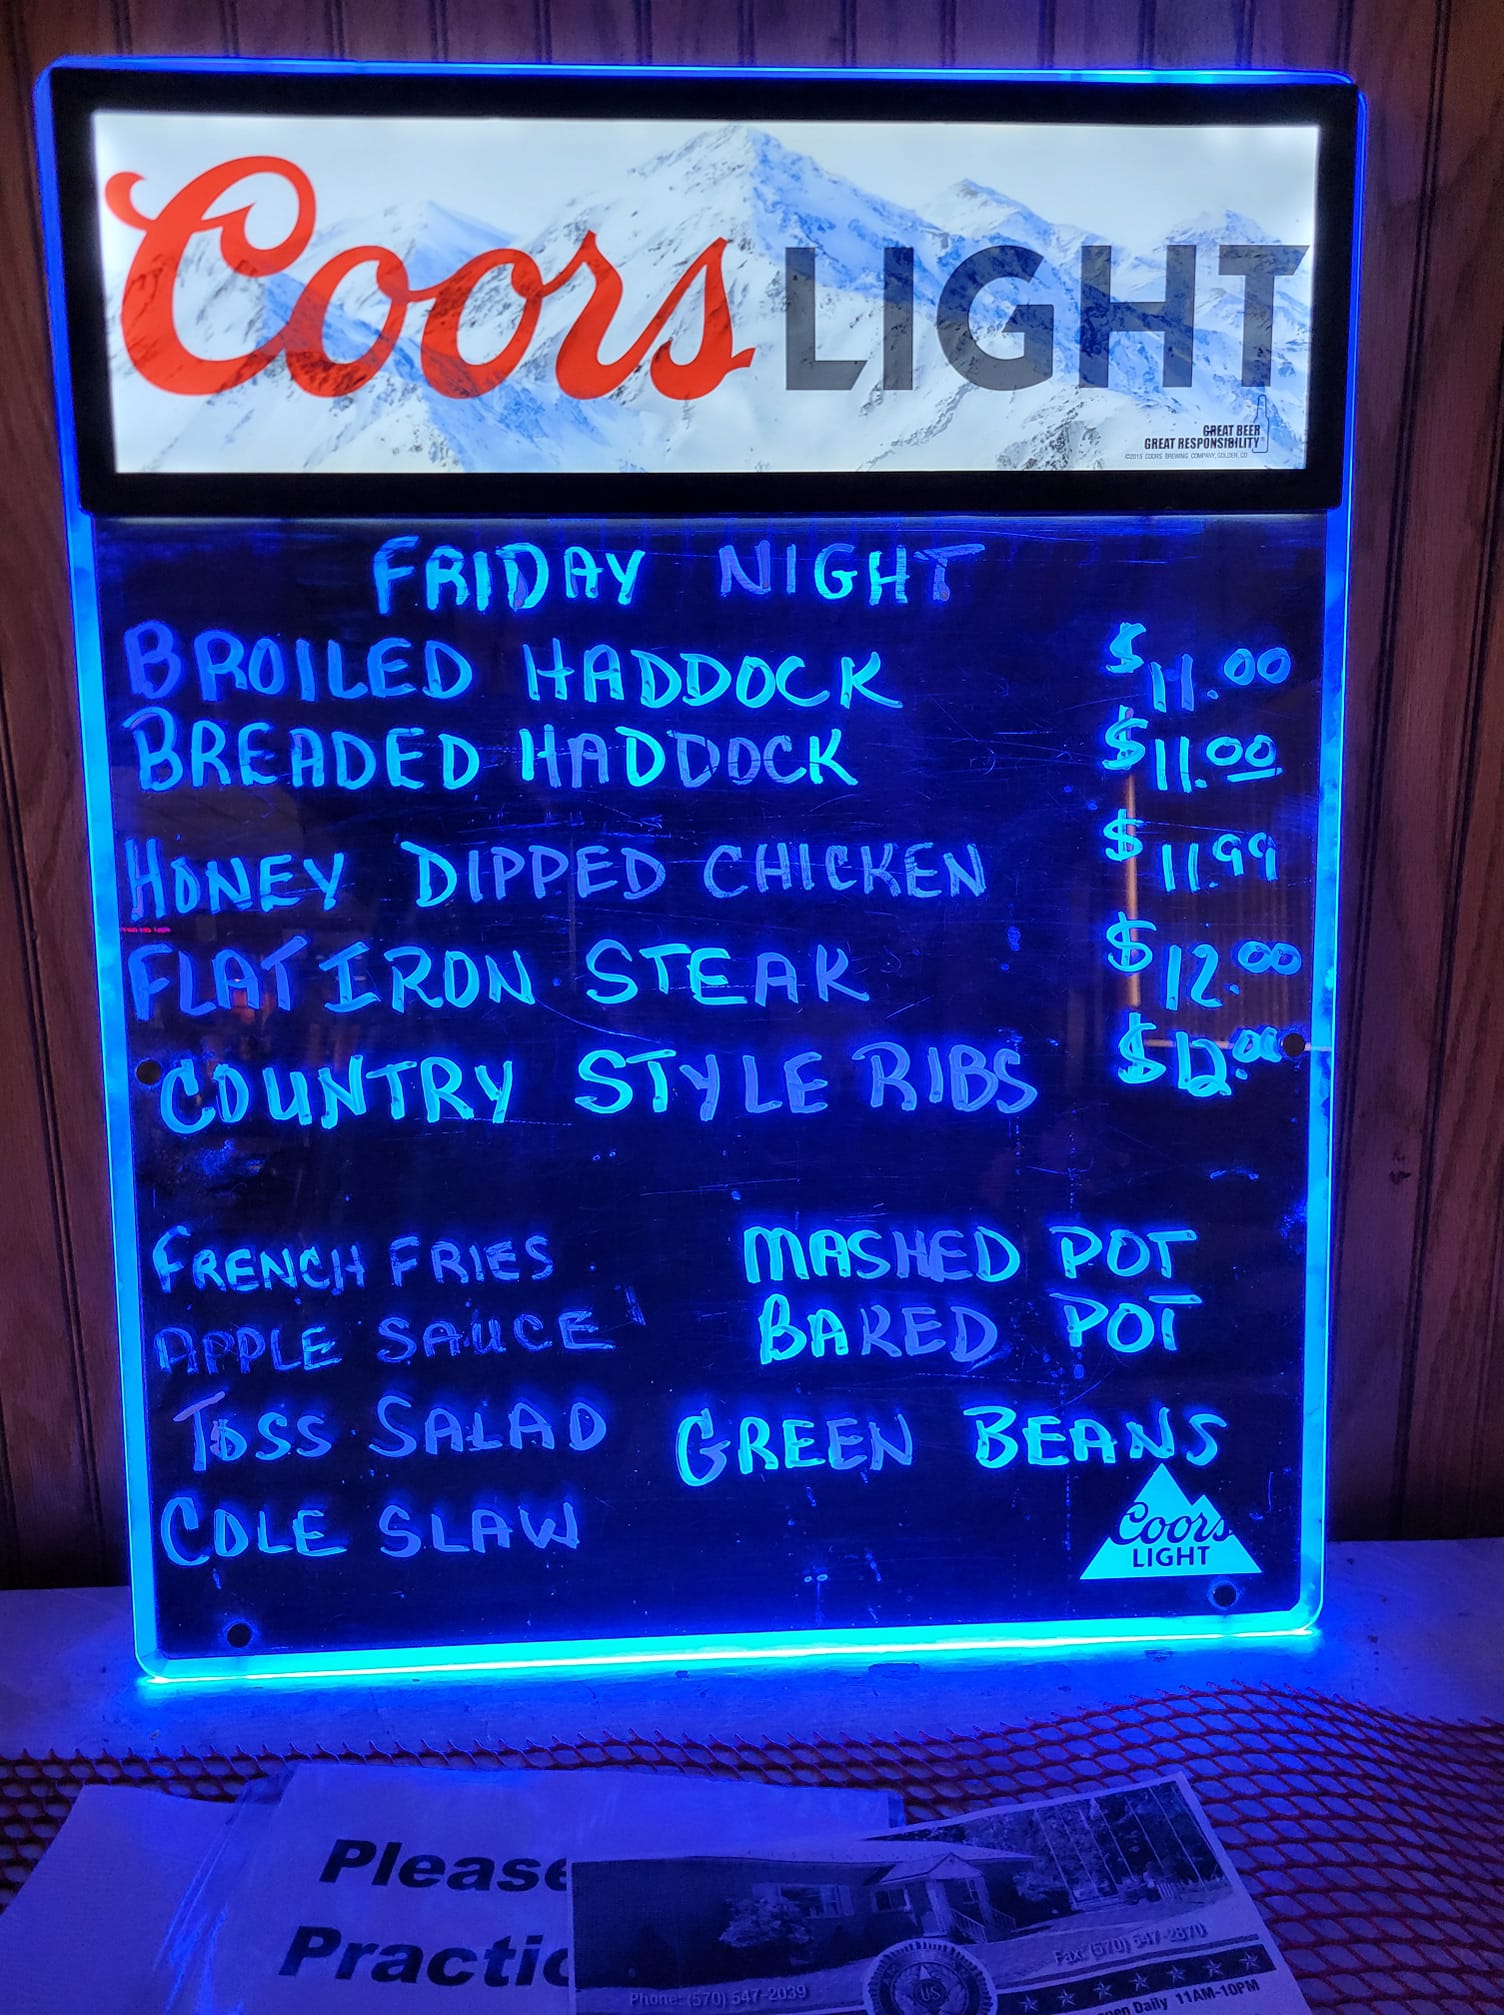 Coors LIGHT
GREAT BEER
GREAT RESPONSIBILITY
©2015 COORS BREWING COMPANY, GOLDEN, CO
FRIDAY NIGHT
BROILED HADDOCK $11.00
BREADED HADDOCK $11.00
HONEY DIPPED CHICKEN $11.99
FLAT IRON STEAK $12.00
COUNTRY STYLE RIBS $12.00
FRENCH FRIES MASHED POT
APPLE SAUCE BAKED POT
TOSS SALAD GREEN BEANS
COLE SLAW
Coors
LIGHT
Please
Practic
Fax: (570) 547-2870
Phone: (570) 547-2039
US
Open Daily 11AM-10PM